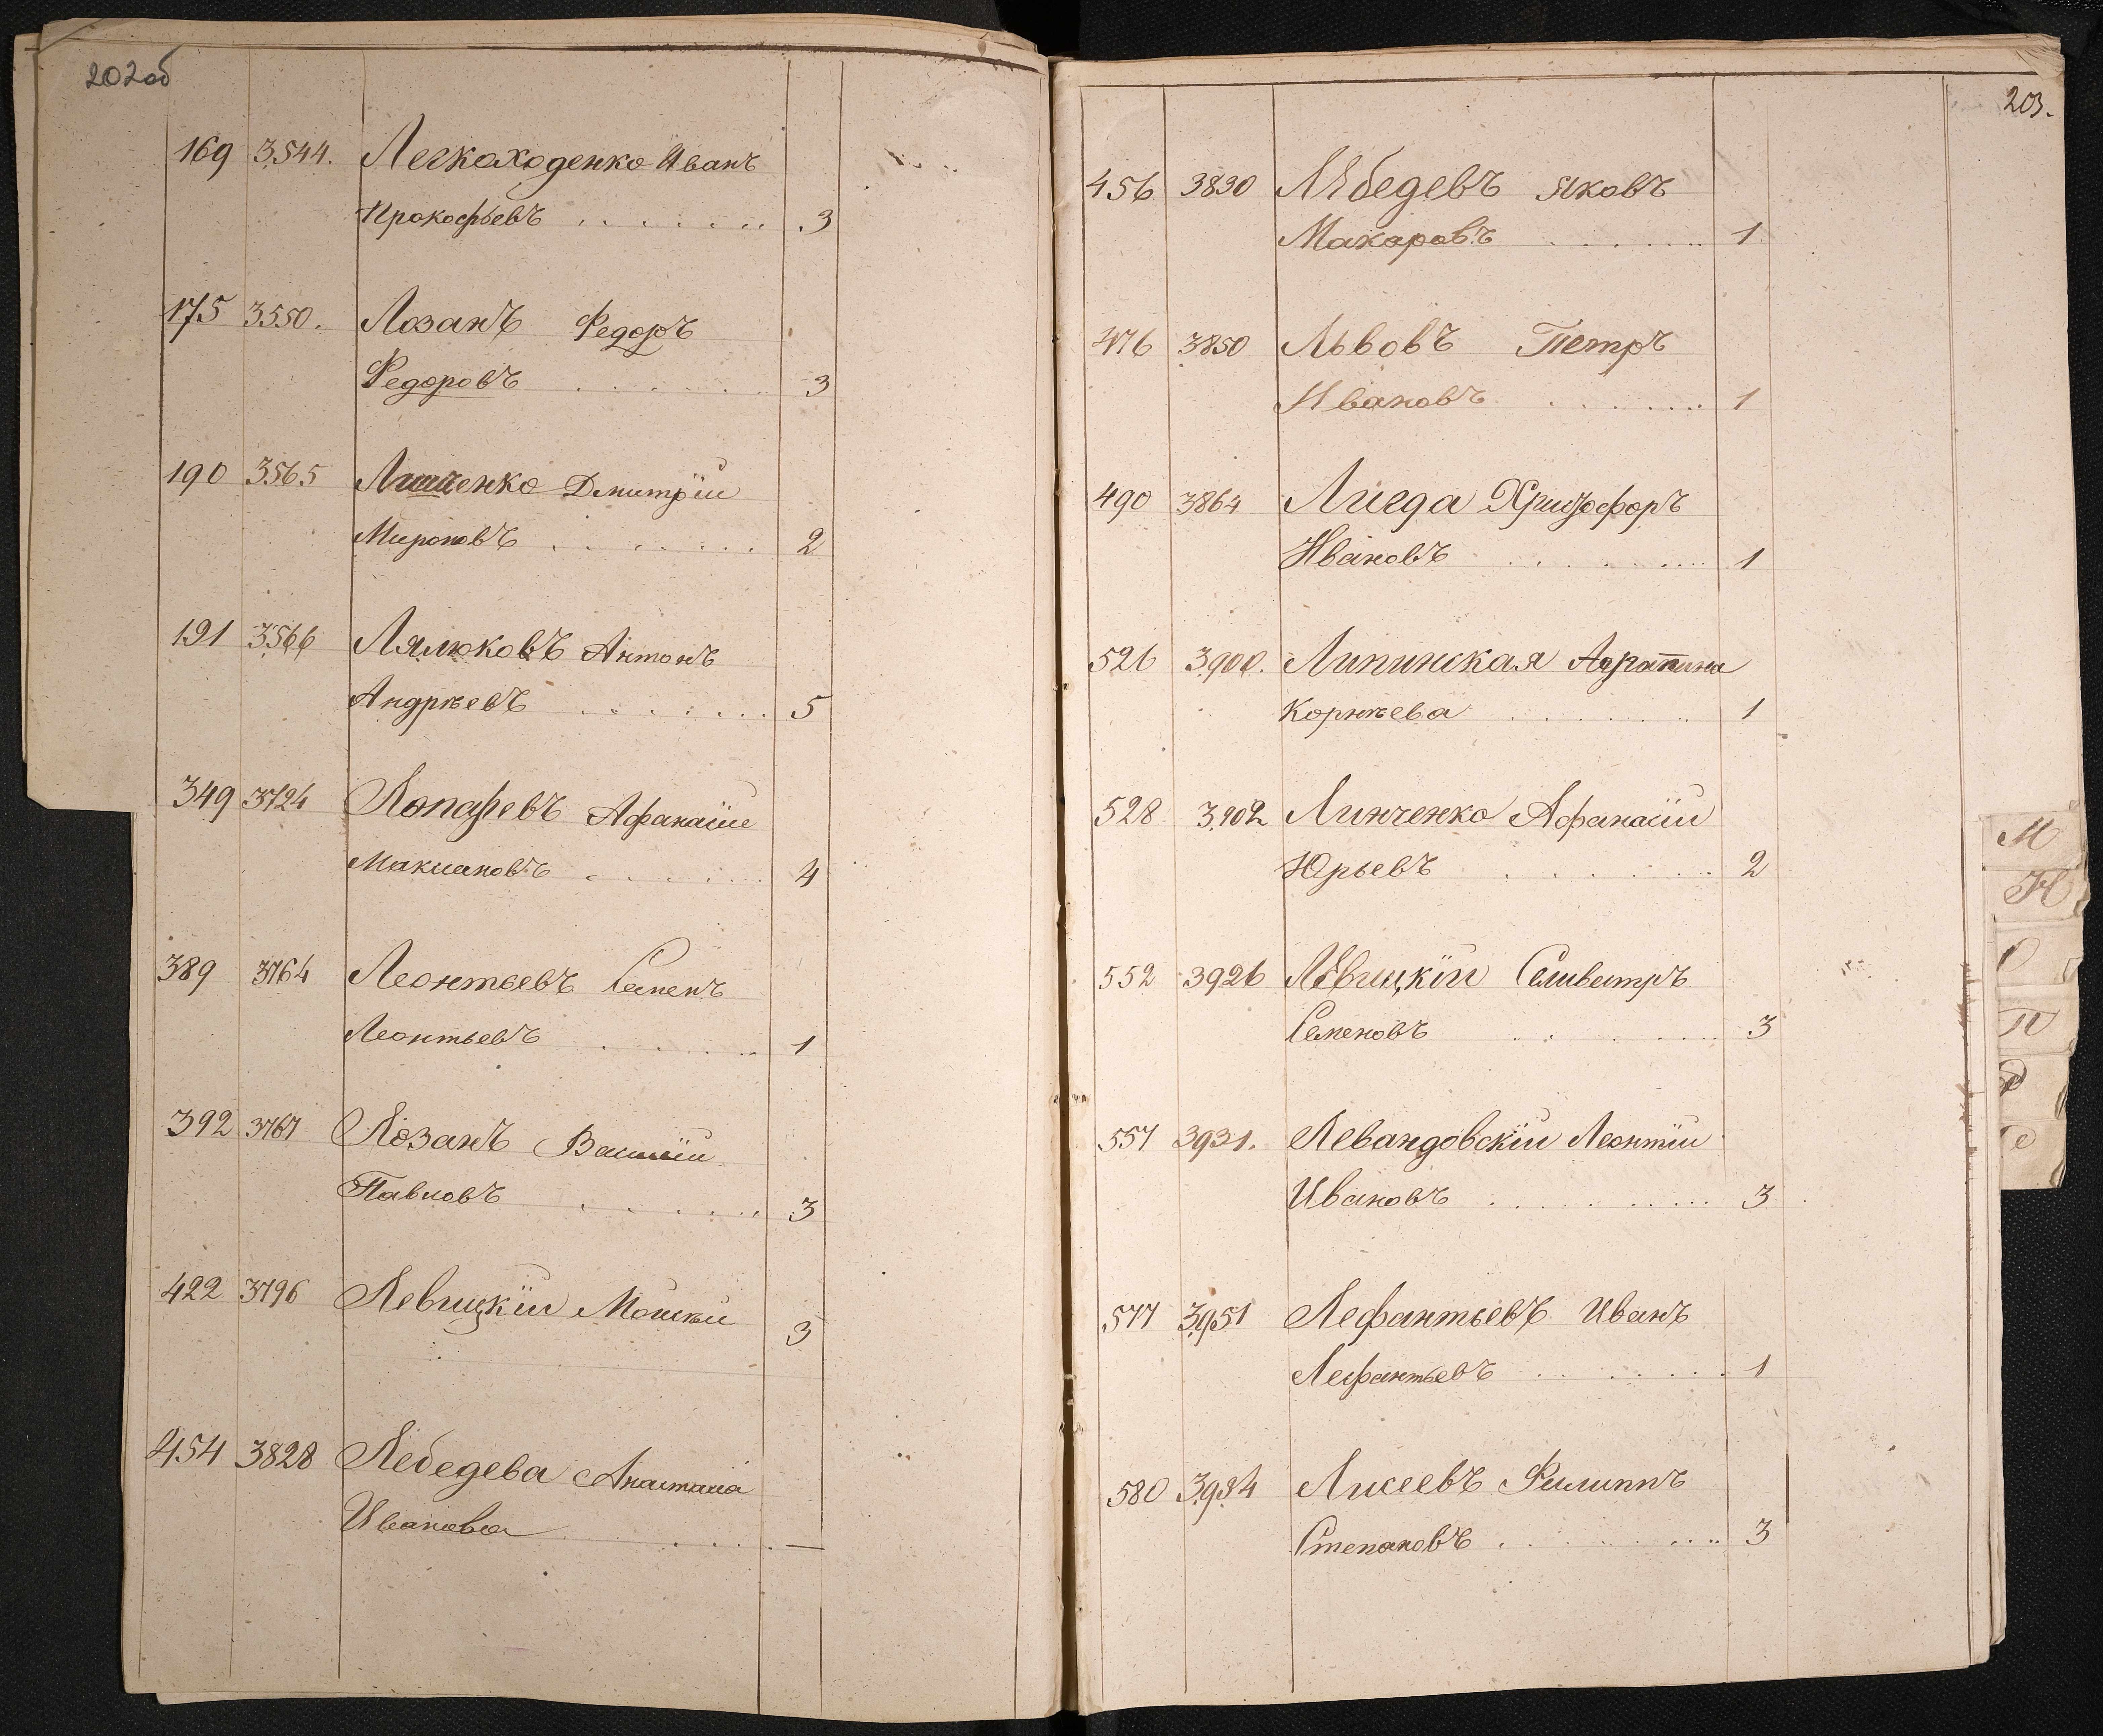 202об
169 3544. Легкаходенко Иванъ
Прокофьевъ . . . . . . . 3
175 3550. Лозанъ Федоръ
Федоровъ . . . . . . . 3
190 3565 Дмитрій
Мироновъ . . . . . . . 2
191 3566 Лялюковъ Антонъ
Андрѣевъ . . . . . . . 5
349 3724 Афанасій
. . . . . . 4
389 3764 Леонтьевъ Семенъ
Леонтьевъ . . . . . . 1
392 3767 Лозанъ Василій
Павловъ . . . . . . . 3
422 3796 Левицкій Мойсѣй
3
454 3828 Лебедева Анастасія
Иванова . . . . —
203.
456 3830 Лѣбедевъ Яковъ
Макаровъ . . . . . . 1
476 3850 Львовъ Петръ
Ивановъ . . . . . . 1
490 3864 Лигда
Ивановъ . . . . . . . 1
526 3900. Липинская Аграпина
Корнѣева . . . . . . . 1
528 3902 Линченко Афанасій
Юрьевъ . . . . . . . 2
552 3926 Лѣвицкій Селивестръ
Семеновъ . . . . . . 3
557 3931. Левандовскій Леонтій
Ивановъ . . . . . . . . 3
577 3951 Лефантьевъ Иванъ
Лефантьевъ . . . . . . 1
580 3934 Ликеевъ Филиппъ
Степановъ . . . . . . . 3
М
Н
О
П
Р
С